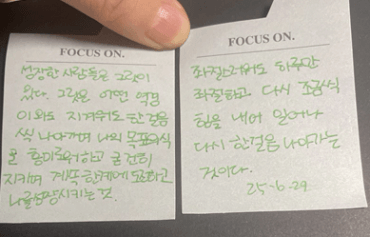 FOCUS ON.
성장한 사람들은 그것이
있다. 그것은 어떤 역경
이와도 지겨워도 한 걸음
씩 나아가며 나의 목표의식
을 흥미로워하고 굳건히
지키며 계속 한계에 도전하고
나를 성장시키는 것.
FOCUS ON.
좌절스러워도 하루만
좌절하고 다시 조금씩
힘을 내어 일어나
다시 한걸음 나아가는
것이다.
25-6-29